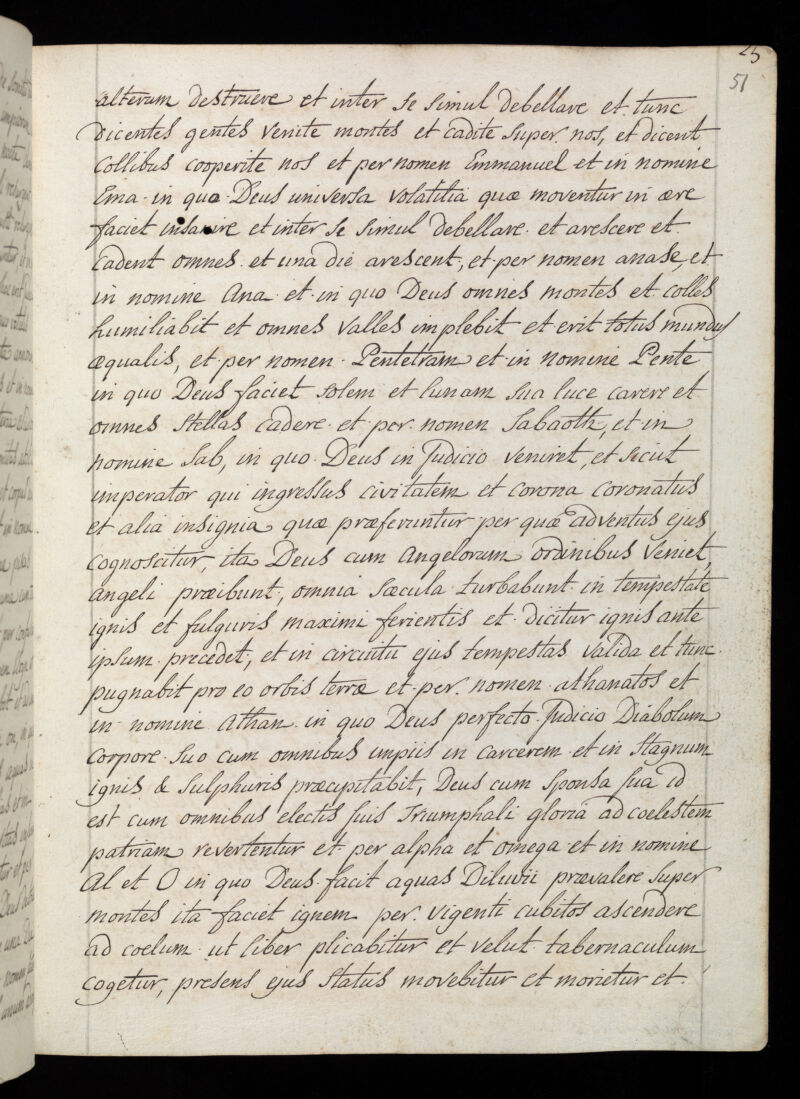 25
51
alterum destruere et inter se simul debellare et tunc
dicentes gentes venite montes et cadite super nos, et dicent
collibus cooperite nos et per nomen Emmanuel et in nomine
Ema in quo Deus universa volatilia quæ moventur in ære
faciet insanire et inter se simul debellare et arescere et
cadent omnes et una die arescent, et per nomen anase, et
in nomine Ana et in quo Deus omnes montes et colles
humiliabit et omnes valles implebit et erit totus mundus
æqualis, et per nomen Pentetram et in nomine Pente
in quo Deus faciet solem et lunam sua luce carere et
omnes stellas cadere et per nomen Sabaoth, et in
nomine Sab, in quo Deus in Judicio veniret, et sicut
imperator qui ingressus civitatem et corona coronatus
et alia insignia quæ præferuntur per quæ adventus ejus
cognoscitur, ita Deus cum Angelorum ordinibus veniet,
angeli præibunt, omnia sæcula turbabunt in tempestate
ignis et fulguris maximi ferientis et dicitur ignis ante
ipsum precedet, et in circuitu ejus tempestas valida et tunc
pugnabit pro eo orbis terræ et per nomen athanatos et
in nomine Athan in quo Deus perfecto Judicio Diabolum
corpore suo cum omnibus impiis in carcerem et in stagnum
ignis & sulphuris præcipitabit, Deus cum sponsa sua id
est cum omnibus electis suis triumphali gloria ad coelestem
patriam revertentur et per alpha et omega et in nomine
Al et O in quo Deus facit aquas Diluvii prævalere super
montes ita faciet ignem per vigenti cubitos ascendere
ad coelum ut liber plicabitur et velut tabernaculum
cogetur, presens ejus status movebitur et morietur et